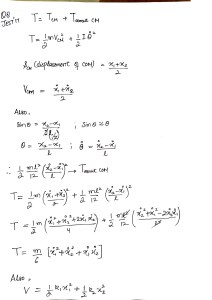 Q8
T = T_CM + T_about CM
T = 1/2 m V_CM² + 1/2 I θ̇²
(displacement of COM) = (x₁ + x₂)/2
V_CM = (ẋ₁ + ẋ₂)/2
Also,
sin θ = (x₂ - x₁)/ , sin θ ≈ θ
θ = (x₂ - x₁)/l ; θ̇ = (ẋ₂ - ẋ₁)/l
∴ 1/2 ml²/12 ((ẋ₂ - ẋ₁)/l)² → T about CM
T = 1/2 m ((ẋ₁ + ẋ₂)/2)² + 1/2 ml²/12 ((ẋ₂ - ẋ₁)/l)²
T = 1/2 m ((ẋ₁² + ẋ₂² + 2ẋ₁ẋ₂)/4) + 1/2 ml²/12 ((ẋ₂² + ẋ₁² - 2ẋ₁ẋ₂)/l²)
T = m/6 [ẋ₁² + ẋ₂² + ẋ₁ẋ₂]
Also,
V = 1/2 k₁x₁² + 1/2 k₂x₂²